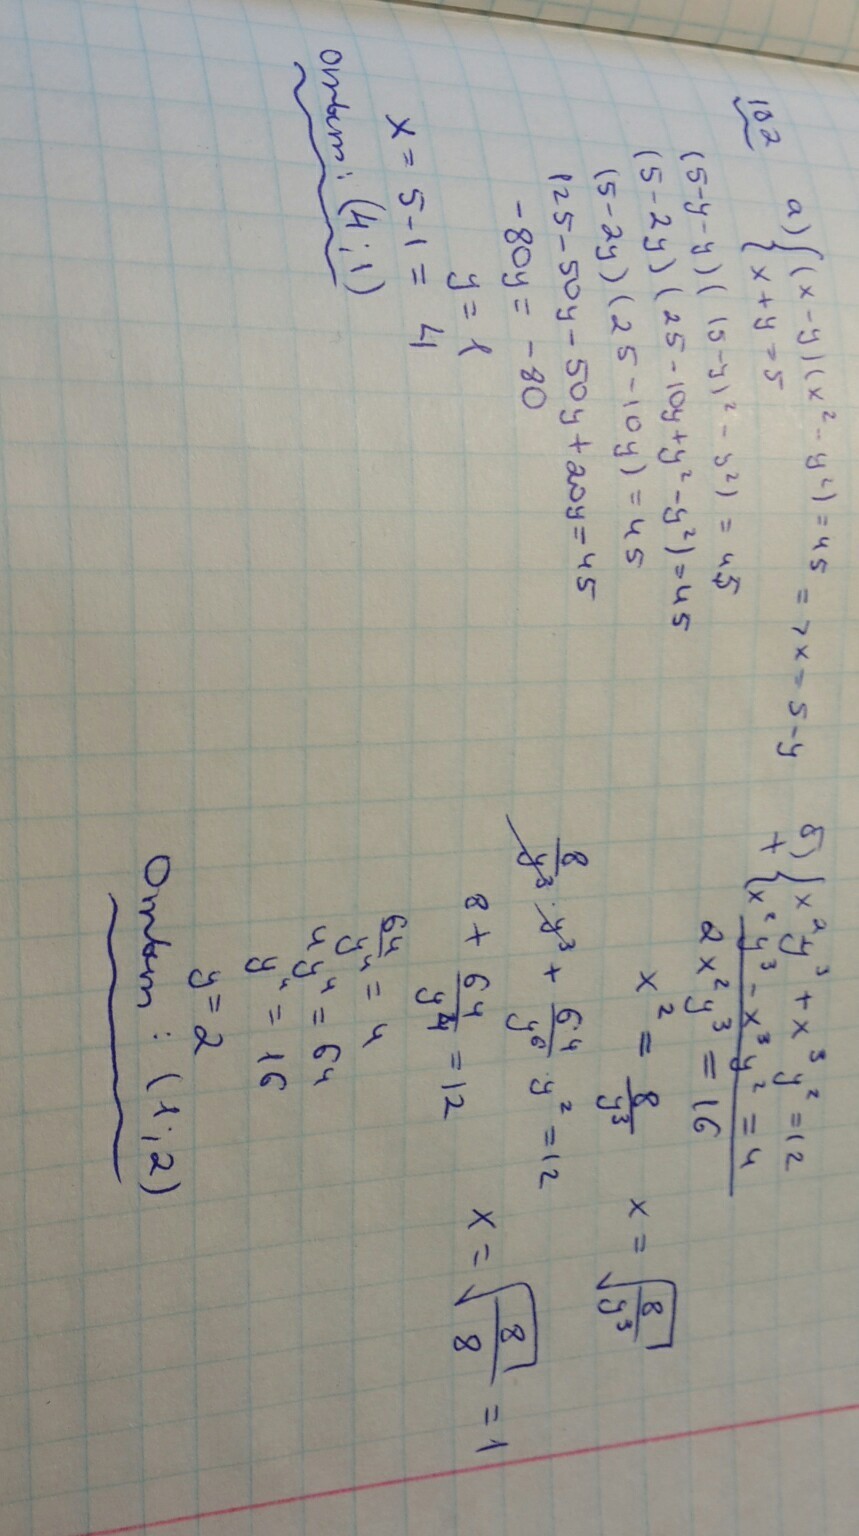 182
а) { (x-y)(x²-y²)=45 => x=5-y
{ x+y=5
(5-y-y)((5-y)²-y²)=45
(5-2y)(25-10y+y²-y²)=45
(5-2y)(25-10y)=45
125-50y-50y+20y=45
-80y=-80
y=1
x=5-1=4
Ответ: (4;1)
б) { x²y³+x³y²=12
+ { x²y³-x³y²=4
2x²y³=16
x²=8/y³ x=√(8/y³)
8/y³·y³+64/y⁶·y²=12
8+64/y⁴=12 x=√(8/8)=1
64/y⁴=4
4y⁴=64
y⁴=16
y=2
Ответ: (1;2)